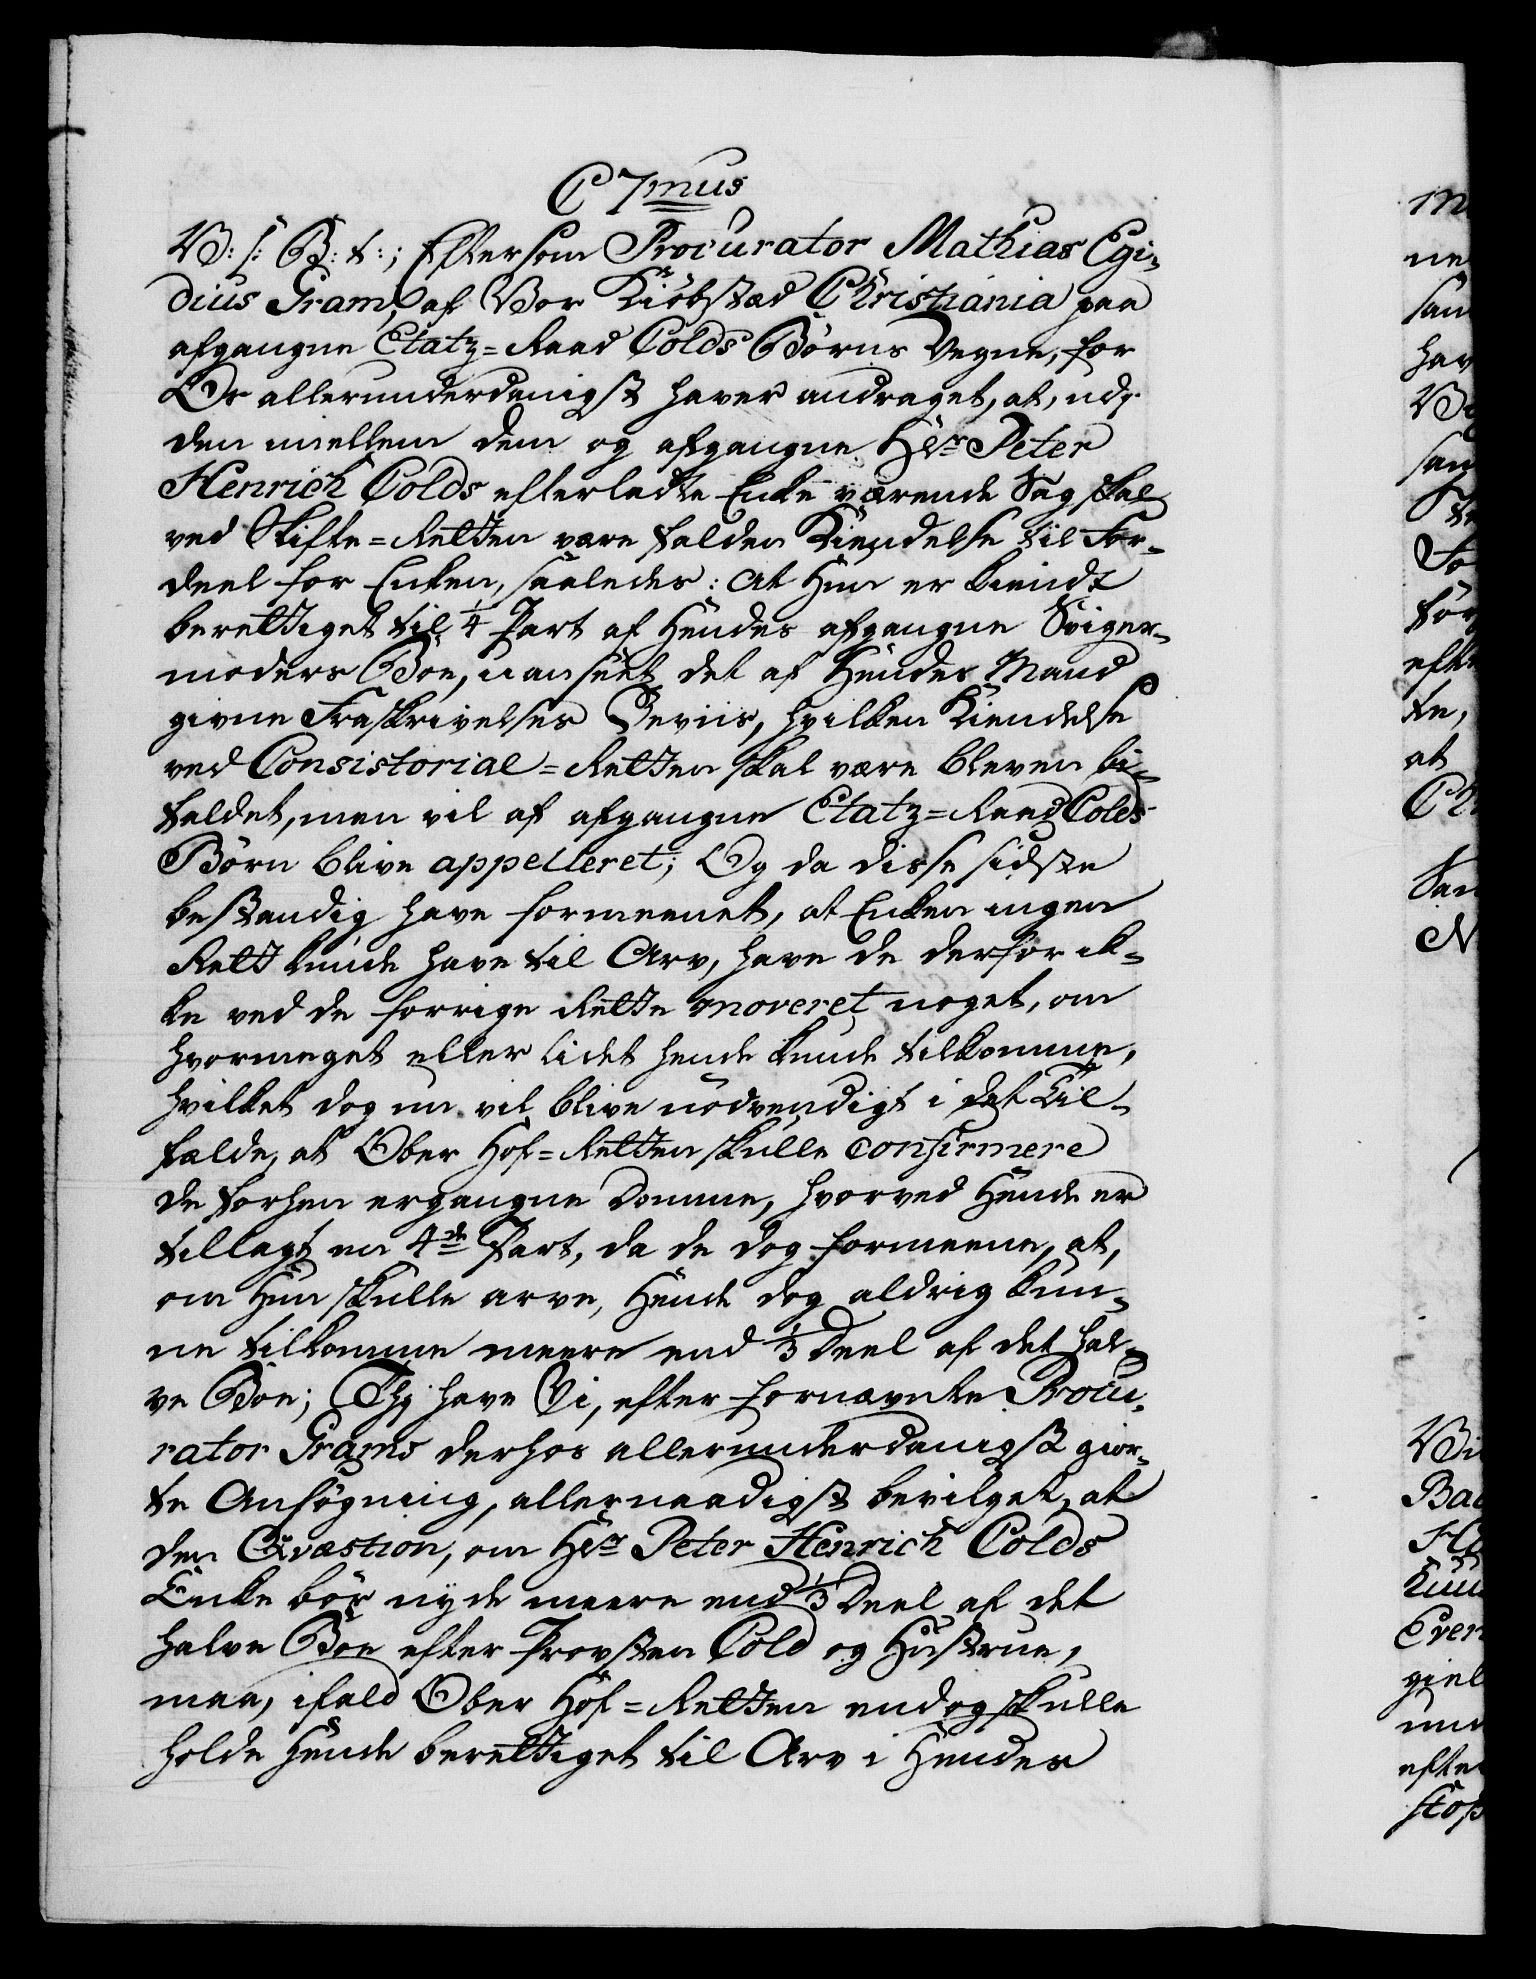 C 7mus
V: s: G: t:; Eftersom Procurator Mathias Egi-
dius Gram, af Vor Kiöbstæd Christiania paa
afgangne Etatz=Raad Colds Börns Vegne, for
Os allerunderdanigst haver andraget, at, udj
den mellem dem og afgangne Hr. Peter
Henrich Colds efterladte Enke værende Sag, skal
ved Skifte=Retten være falden Kiendelse til For-
deel for Enken, saaledes: at Hun er kiendt
berettiget til 1/4 Part af Hendes afgangne Sviger-
moders Boe, uanseet det af Hendes Mand
givne Fraskrivelses Beviis, hvilken Kiendelse
ved Consistorial=Retten skal være bleven bi-
faldet, men vil af afgangne Etatz=Raad Colds
Börn blive appelleret; Og da disse sidste
bestandig have formeenet, at Enken ingen
Rett kunde have til Arv, have de derfor ik-
ke ved de forrige Rette moveret noget, om
hvormeget eller lidet hende kunde tilkomme,
hvilket dog nu vil blive nödvendigt i det Til-
fælde, at Ober Hof=Retten skulle confirmere
de forhen ergangne Domme, hvorved Hende er
tillagt en 4de Part, da de dog formeene, at,
om Hun skulle arve, Hende dog aldrig kun-
ne tilkomme meere end 1/3 Deel af det hal-
ve Boe; Thj have Vi, efter fornævnte Procu-
rator Grams derhos allerunderdanigst gior-
te Ansögning, allernaadigst bevilget, at
den Qvæstion, om Hr. Peter Henrich Colds
Enke bör nyde meere end 1/3 Deel af det
halve Boe efter Provsten Cold og Hustrue,
maa, ifald Ober Hof=Retten endog skulle
holde Hende berettiget til Arv i Hendes